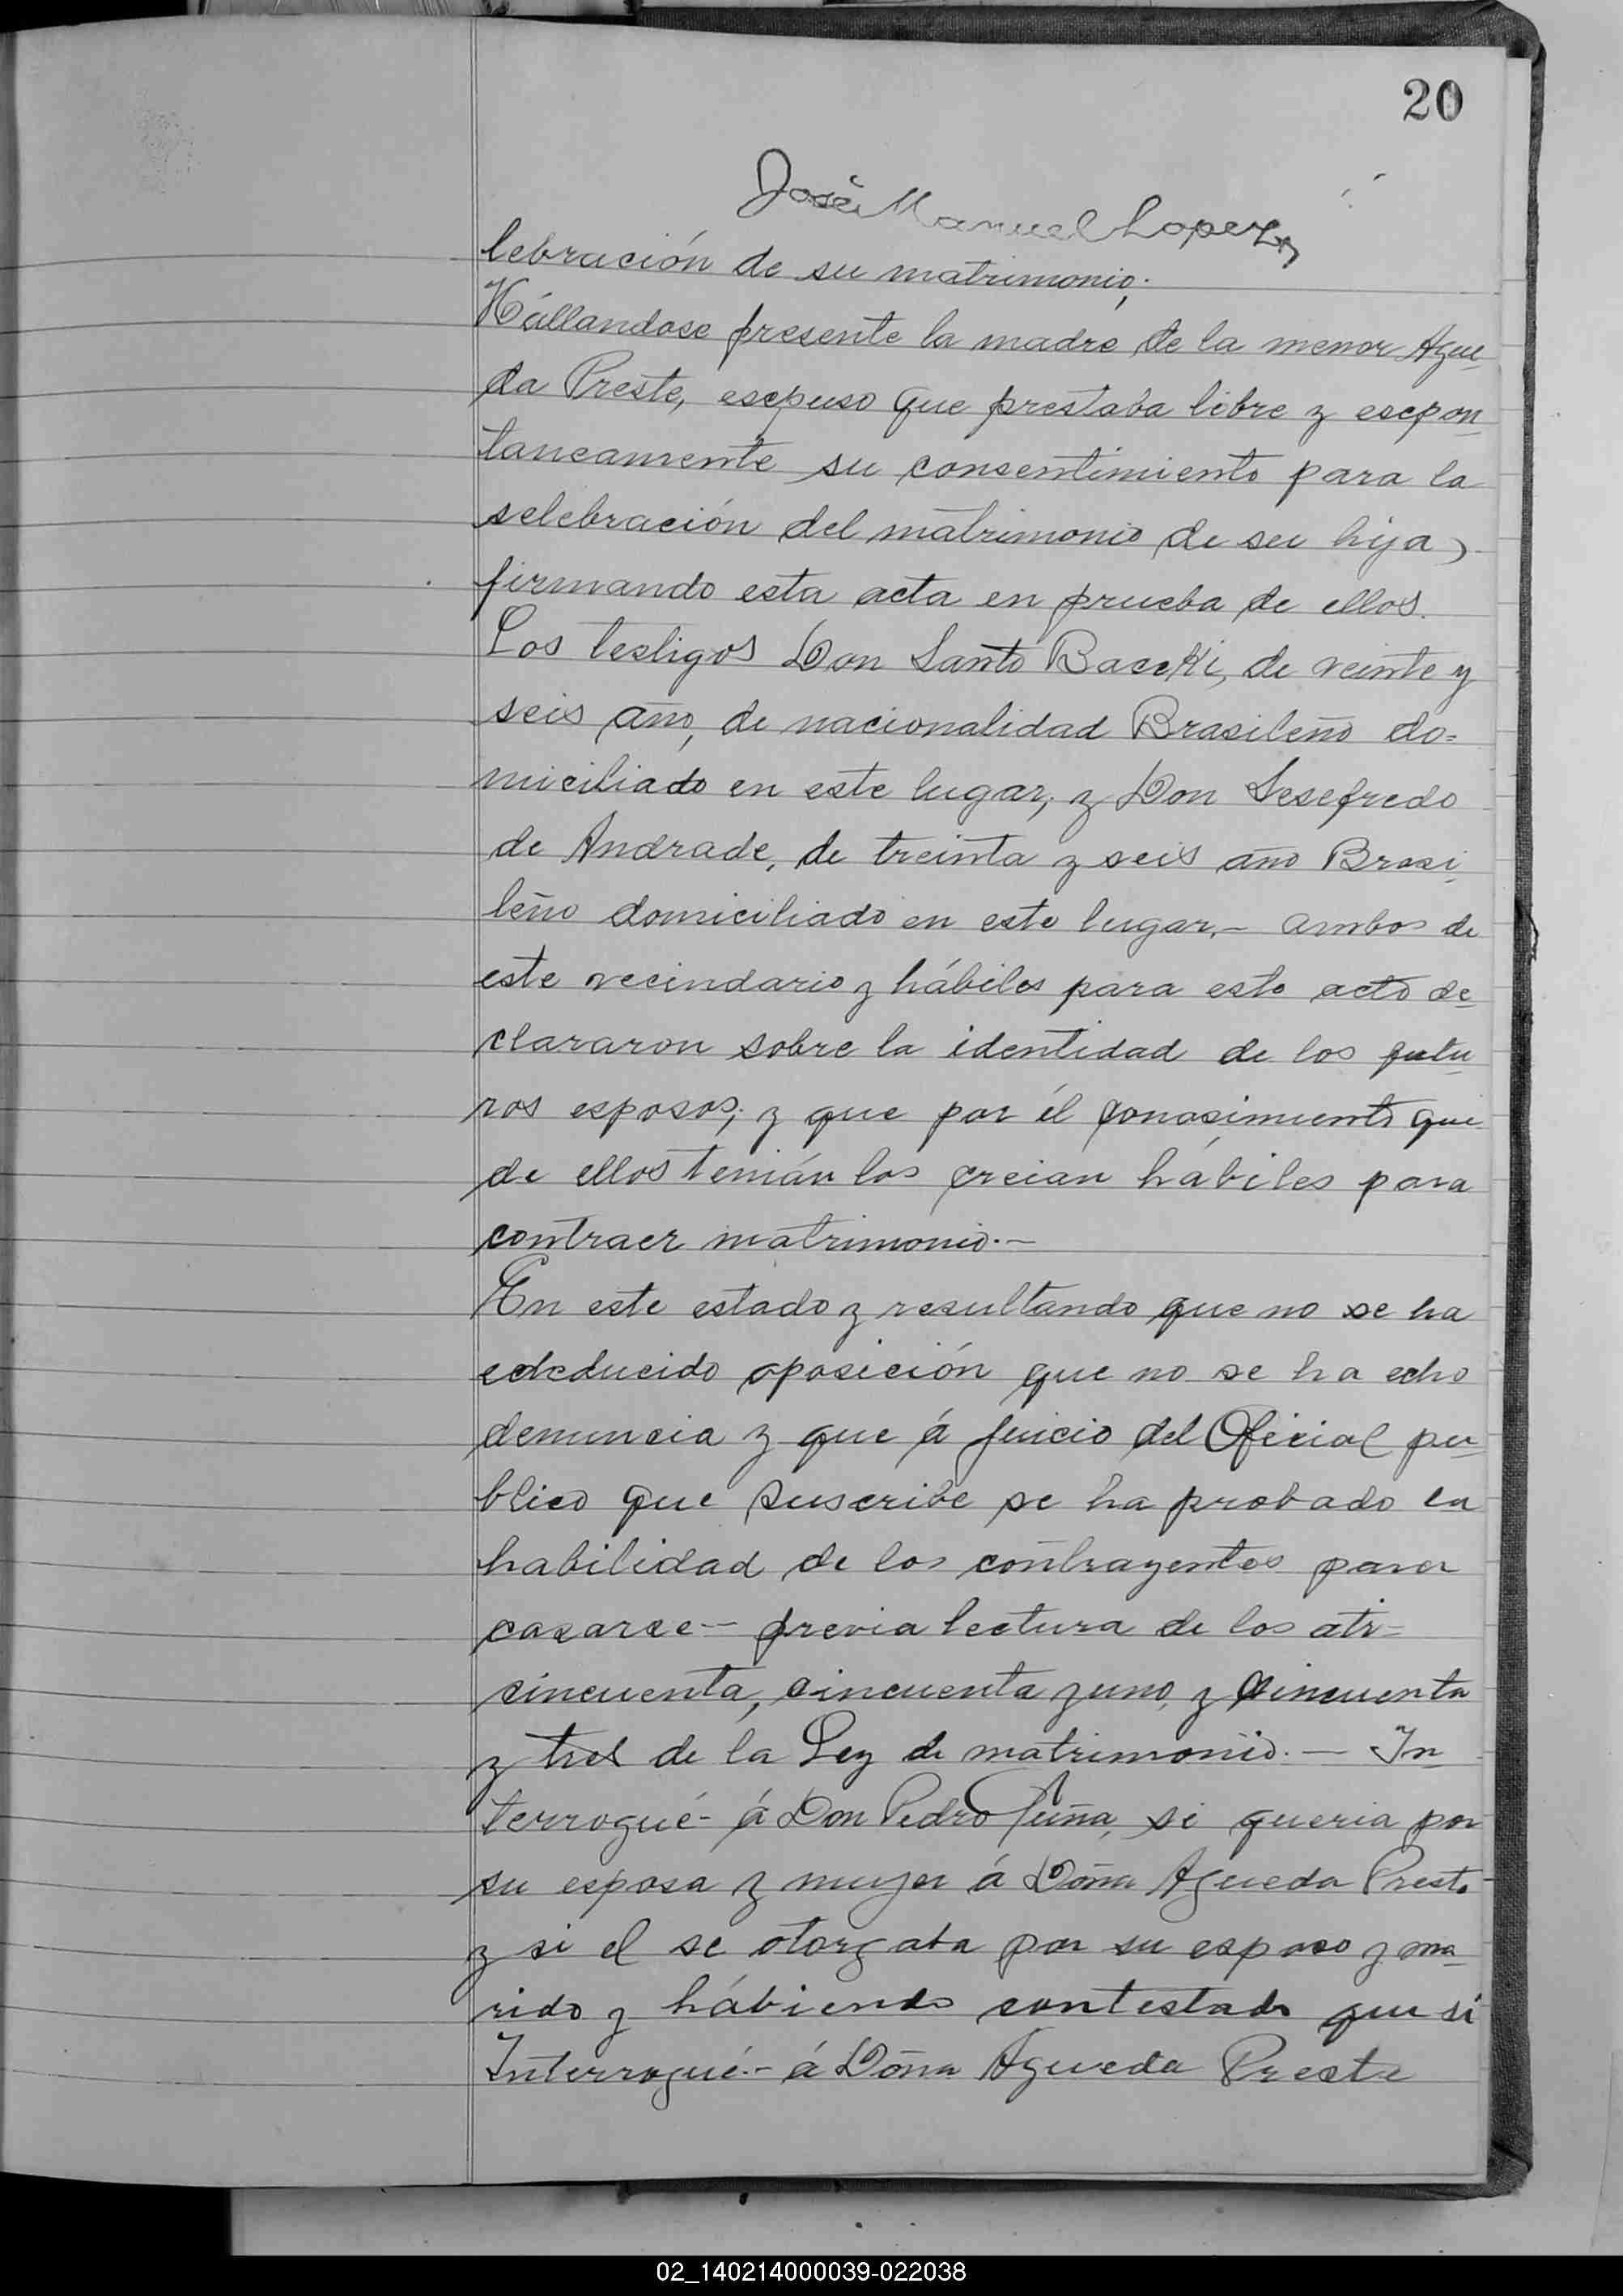 20
José Manuel Lopez
lebración de su matrimonio;
Hállandose presente la madre de la menor Ague
da Preste, esepuso que prestaba libre y esepon
taneamente su consentimiento para la
selebración del matrimonio de su hija,
firmando esta acta en prueba de ellos.
Los testigos Don Santo Baceki, de veinte y
seis año, de nacionalidad Brasileño do=
miciliado en este lugar, y Don Sesefredo
de Andrade, de treinta y seis año Brasi
leño domiciliado en este lugar.- ambos de
este vecindario y hábiles para este acto de
clararon sobre la identidad de los futu
ros esposos; y que por él conosimiento que
de ellos tenián los creian hábiles para
contraer matrimonio.-
En este estado y resultando que no se ha
deducido oposición que no se ha echo
denuncia y que á juicio del Oficial pu
blico que suscribe se ha probado la
habilidad de los contrayentes para
casarse- previa lectura de los atr=
cincuenta, cincuenta y uno, y cincuenta
y tres de la Ley de matrimonio.- In
terrogué- á Don Pedro si queria por
su esposa y mujer á Doña Agueda Preste
y si el se otorgaba por su esposo y ma
rido y hábiendo contestado que si
Interrogué.- á Doña Agueda Preste
02_140214000039-022038